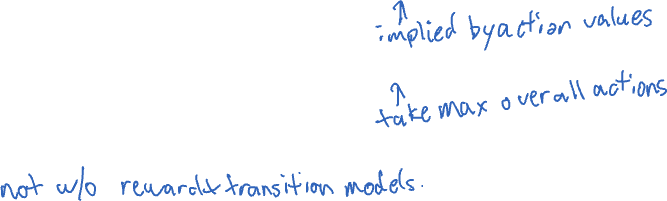 implied by action values
take max over all actions
not w/o reward & transition models.